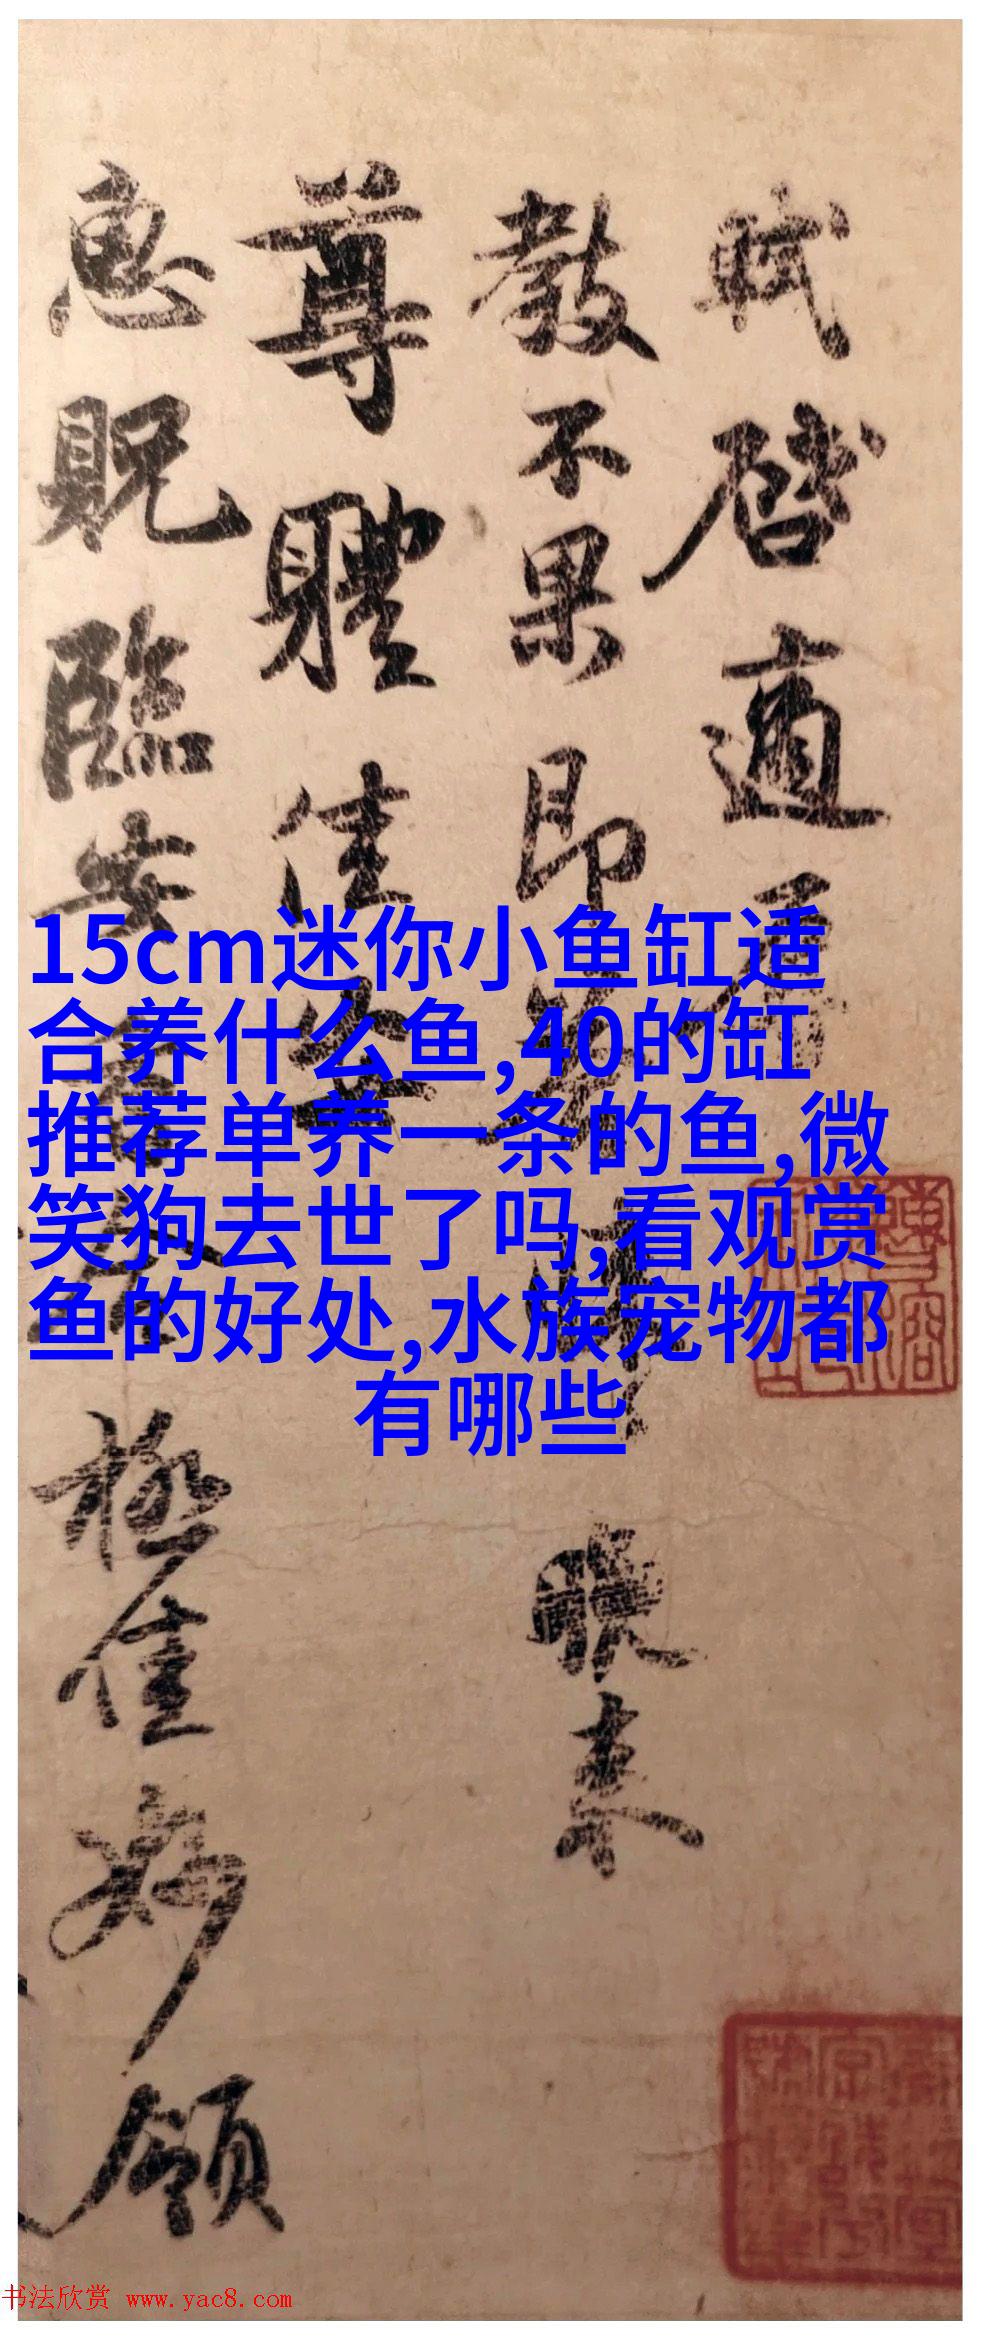 軾啓適辱
教不果即晚来
尊體佳安
惠貺臨安極佳妙領
15cm迷你小鱼缸适
合养什么鱼,40的缸
推荐单养一条的鱼,微
笑狗去世了吗,看观赏
鱼的好处,水族宠物都
有哪些
书法欣赏 www.yac8.com